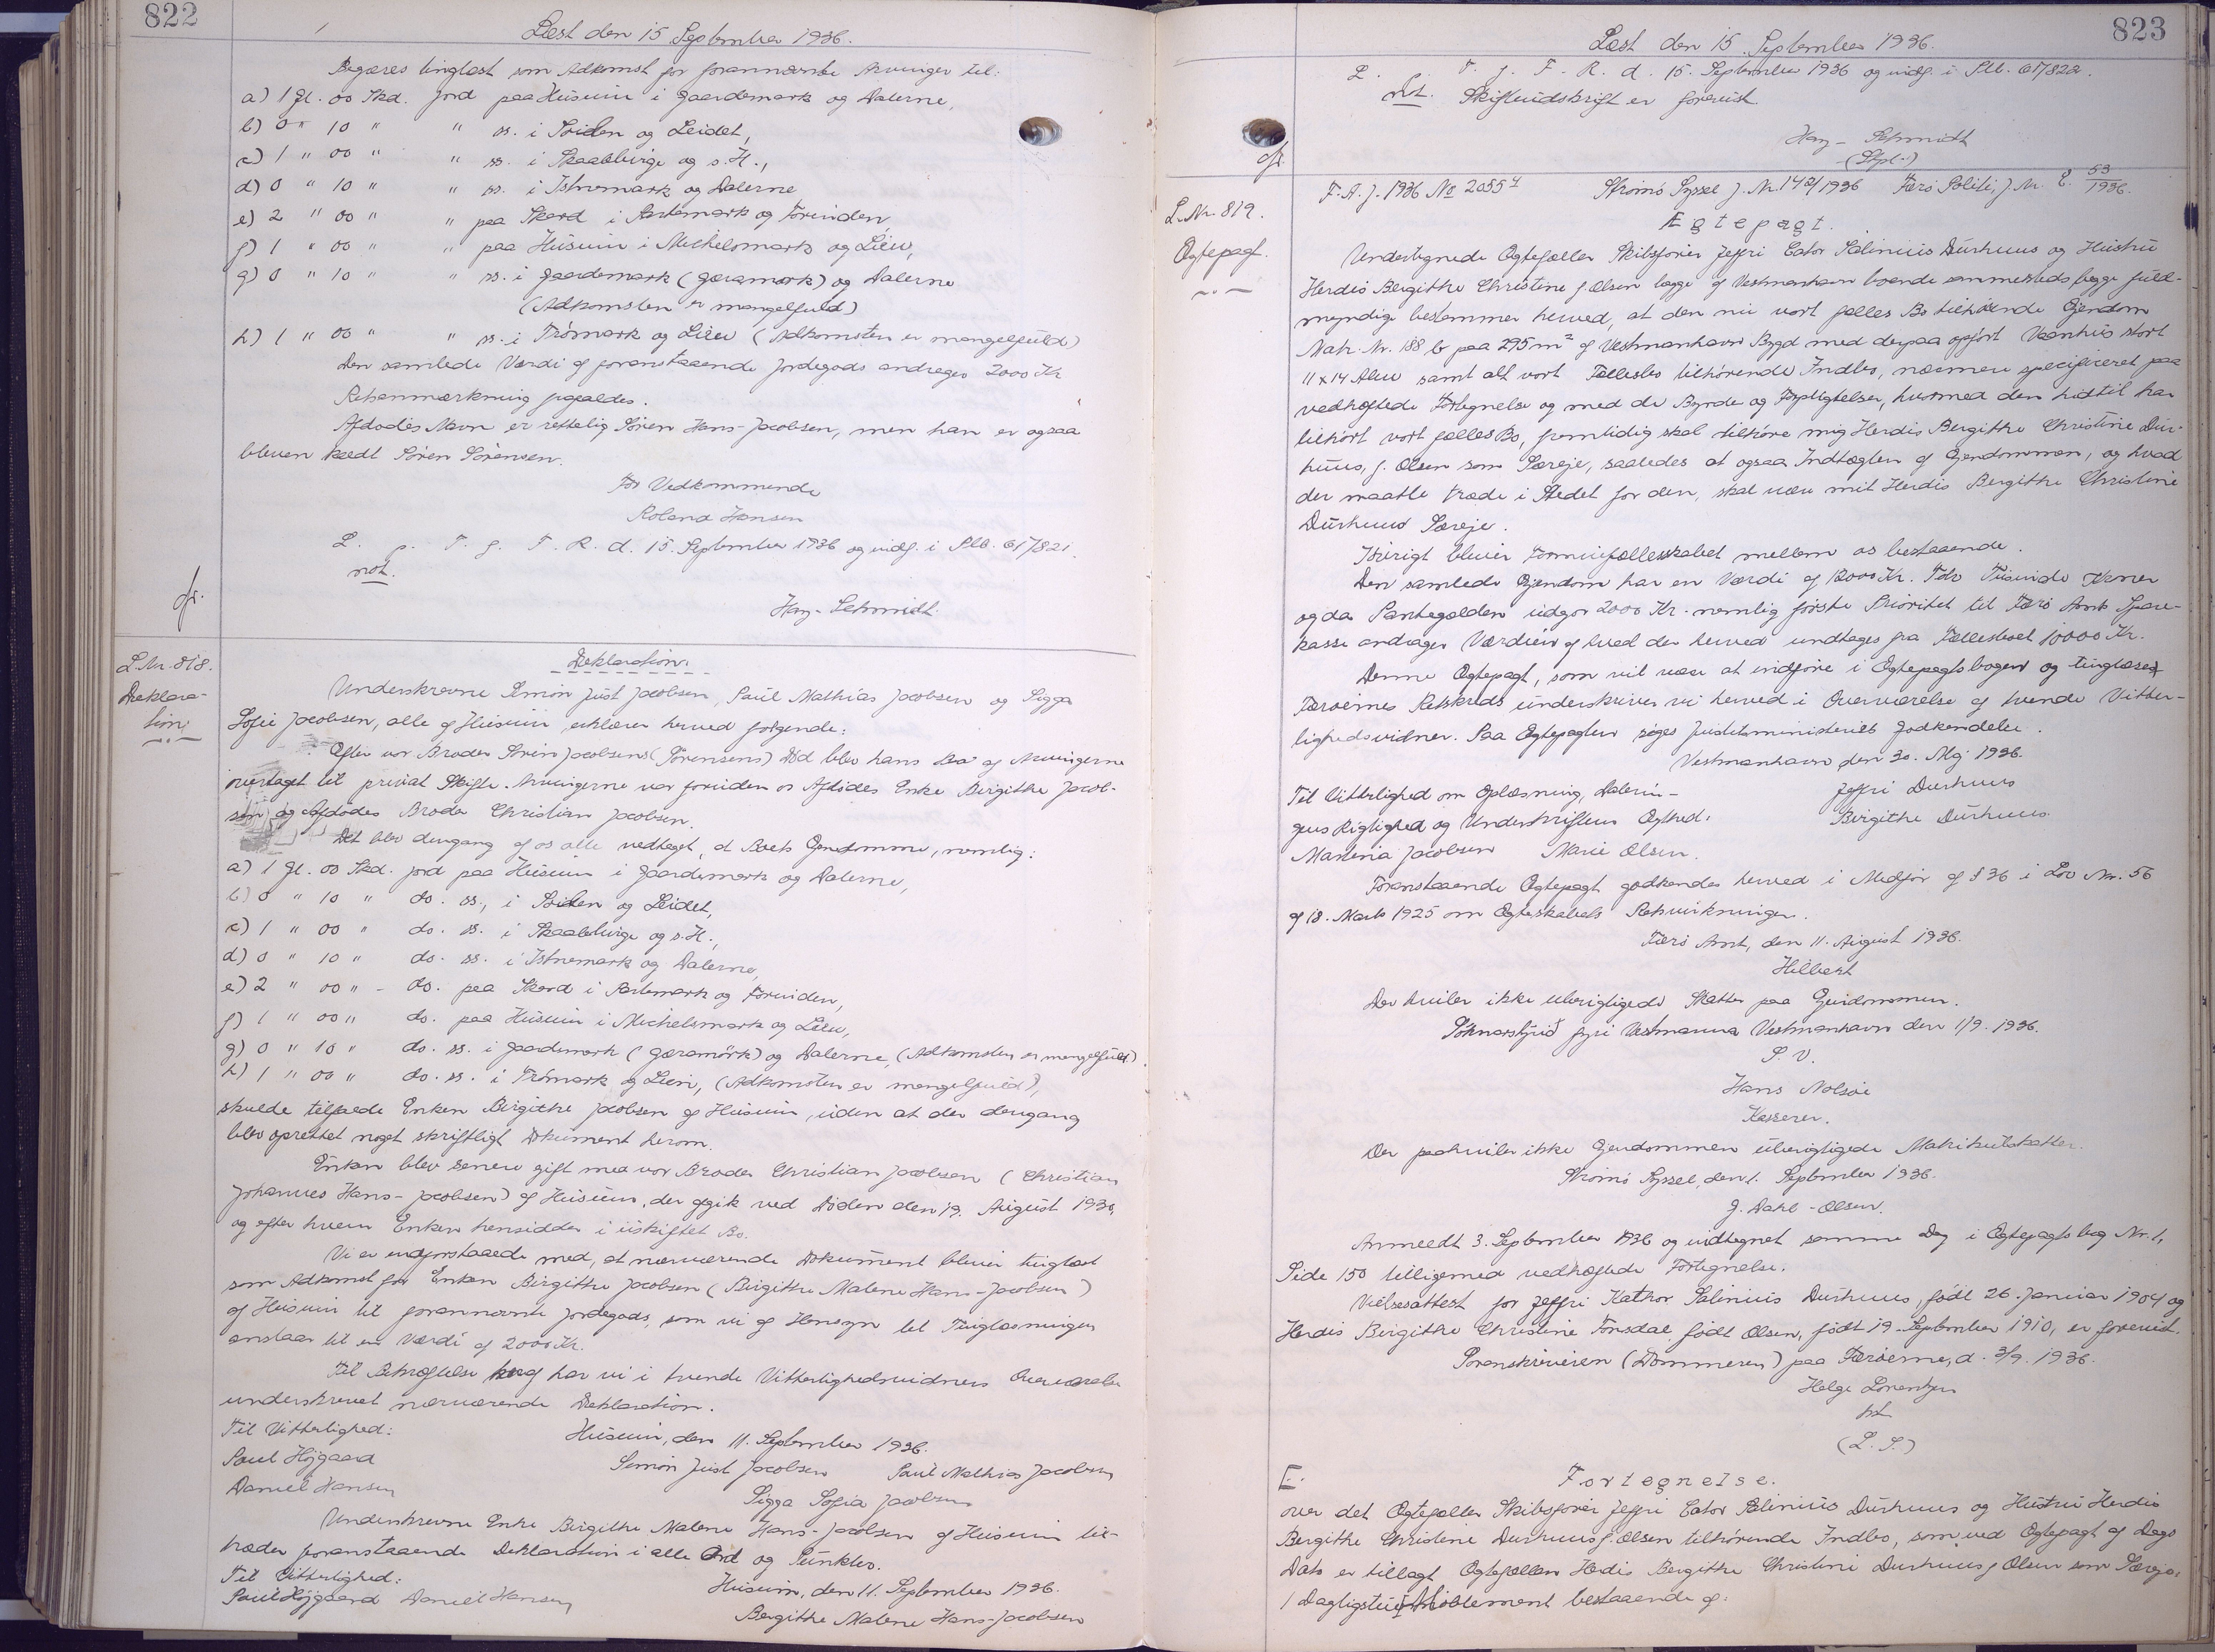 822
Læst den 15 September 1936.
Begæres tinglæst som Adkomst for forannævnte Arvinger til:
a) 1 Gl. 00 Skd. Jord paa Húsum i Gaardemark og Dalerne,
b) 0 " 10 " " ss. i Sviden og Leidet,
c) 1 " 00 " " ss. i Skaalelvige og s. H.,
d) 0 " 10 " " ss. i Istnemark og Dalerne
e) 2 " 00 " " paa Skord i Partemark og Foruden,
f) 1 " 00 " " paa Húsum i Michelsmark og Lien,
g) 0 " 10 " " ss. i Gaardemark (Gæramørk) og Dalerne
(Adkomsten er mangelfuld)
h) 1 " 00 " " ss. i Trómark og Lien (Adkomsten er mangelfuld)
Den samlede Værdi af foranstaaende Jordegods andrages 2000 Kr
Retsanmærkning frafaldes.
Afdødes Navn er rettelig Sören Hans-Jacobsen, men han er ogsaa
bleven kaldt Sören Sörensen.
For Vedkommende
Roland Hansen
L. p. T. f. F. R. d. 15. September 1936 og indf. i Slb. 617/821.
not.
Hay-Schmidt.
cfr.
L. Nr. 818.
Deklara-
tion.
Deklaration.
Underskrevne Simón Just Jacobsen, Paul Mathias Jacobsen og Sigga
Sofie Jacobsen, alle af Húsum, erklærer herved følgende:
Efter vor Broder Sören Jacobsens (Sørensens) Død blev hans Bo af Arvingerne
overtaget til privat Skifte. Arvingerne var foruden os Afdödes Enke Birgithe Jacob-
sen og Afdødes Broder Christian Jacobsen.
Det blev dengang af os alle vedtaget, at Boets Ejendomme, nemlig:
a) 1 Gl. 00 Skd. Jord paa Húsum i Gaardemark og Dalerne,
b) 0 " 10 " do. ss., i Sviden og Leidet,
c) 1 " 00 " do. ss. i Skaalelvige og s. H.,
d) 0 " 10 " do. ss. i Istnemark og Dalerne,
e) 2 " 00 " - do. paa Skord i Partemark og Foruden,
f) 1 " 00 " do. paa Húsum i Michelsmark og Lien,
g) 0 " 10 " do. ss. i Gaardemark (Gæramörk) og Dalerne, (Adkomsten er mangelfuld)
h) 1 " 00 " do. ss. i Trómark og Lien, (Adkomsten er mangelfuld),
skulde tilfalde Enken Birgithe Jacobsen af Húsum, uden at der dengang
blev oprettet noget skriftligt Dokument herom.
Enken blev senere gift med vor Broder Christian Jacobsen (Christian
Johannes Hans-Jacobsen) af Húsum, der afgik ved Døden den 19. August 1930,
og efter hvem Enken hensidder i uskiftet Bo.
Vi er indforstaaede med, at nærværende Dokument bliver tinglæst
som Adkomst for Enken Birgithe Jacobsen (Birgithe Malene Hans-Jacobsen)
af Húsum til forannævnte Jordegods, som vi af Hensyn til Tinglæsningen
anslaar til en Værdi af 2000 Kr.
Til Bekræftelse heraf har vi i tvende Vitterlighedsvidners Overværelse
underskrevet nærværende Deklaration.
Til Vitterlighed: Húsum, den 11. September 1936.
Paul Højgaard Simón Just Jacobsen Paul Mathias Jacobsen
Daniel Hansen Sigga Sofia Jacobsen
Underskrevne Enke Birgithe Malene Hans-Jacobsen af Húsum til-
træder foranstaaende Deklaration i alle Ord og Punkter.
Til Vitterlighed: Húsum, den 11. September 1936.
Paul Højgaard Daniel Hansen
Bergithe Malene Hans-Jacobsen
823
Læst den 15. September 1936.
L. T. f. F. R. d. 15. September 1936 og indf. i Slb. 617/822.
not. Skifteudskrift er forevist
Hay-Schmidt
(Stpl.)
cfr.
L. Nr. 819.
Ægtepagt.
F. A. J. 1936 No 2055 4 Strömö Syssel J. Nr. 142/1936 Færö Politi, J. Nr. E. 53/1936.
Ægtepagt.
Undertegnede Ægtefæller Skibsfører Jeffri Cator Salinius Dúrhuus og Hústru
Herdis Bergithe Christine f. Olsen begge af Vestmanhavn boende sammesteds begge fuld-
myndige bestemmer herved, at den nu vort fælles Bo tilhørende Ejendom
Matr. Nr. 188 b paa 295 m² af Vestmanhavn Bygd med derpaa opfört Vaanhus stort
11 x 14 Alen samt alt vort Fællesbo tilhörende Indbo, nærmere specificeret paa
vedhæftede Fortegnelse og med de Byrder og Forpligtelser, hvormed den hidtil har
tilhört vort fælles Bo, fremtidig skal tilhöre mig Herdis Bergithe Christine Dúr-
huus, f. Olsen som Særeje, saaledes at ogsaa Indtægten af Ejendommen, og hvad
der maatte træde i Stedet for den, skal være mit Herdis Bergithe Christine
Dúrhuus Særeje.
Isvrigt bliver Formuefællesskabet mellem os bestaaende.
Den samlede Ejendom har en Værdi af 12000 Kr. Tolv Tusinde Kroner
og da Pantegælden udgør 2000 Kr. nemlig første Prioritet til Færö Amts Spare-
kasse andrager Værdien af hvad der herved undtages fra Fællesboet 10000 Kr.
Denne Ægtepagt, som vil være at indføre i Ægtepagtsbogen og tinglæses
Færøernes Retskreds underskriver vi herved i Overværelse af tvende Vitter-
lighedsvidner. Paa Ægtepagten søges Justitsministeriets Godkendelse.
Vestmanhavn den 30. Maj 1936.
Til Vitterlighed om Oplæsning, Daterin- Jeffri Durhuus
gens Rigtighed og Underskriftens Ægthed: Birgithe Dúrhuus.
Martenia Jacobsen Marie Olsen.
Foranstaaende Ægtepagt godkendes herved i Medfør af § 36 i Lov Nr. 56
af 18. Marts 1925 om Ægteskabets Retsvirkninger.
Færö Amt, den 11. August 1936.
Hilbert
Der hviler ikke uberigtigede Skatter paa Ejendommen.
Sóknarstýrið fyri Vestmanna Vestmanhavn den 1/9. 1936.
P. V.
Hans Nolsöe
Kasserer.
Der paahviler ikke Ejendommen uberigtigede Matrikulskatter.
Strömö Syssel, den 1. September 1936.
J. Dahl-Olsen.
Anmeldt 3. September 1936 og indtegnet samme Dag i Ægtepagtsbog Nr. 1,
Side 150 tilligemed vedhæftede Fortegnelse.
Vielsesattest for Jeffri Kathor Salinius Durhuus, født 26. Januar 1904 og
Herdis Birgithe Christine Fonsdal født Olsen, født 19. September 1910, er forevist.
Sorenskriveren (Dommeren) paa Færöerne, d. 3/9. 1936.
Helge Lorentzen
fst
(L. S.)
E. Fortegnelse.
over det Ægtefæller Skibsfører Jeffri Cator Salinius Dúrhuus og Hústru Herdis
Bergithe Christine Durhuus f. Olsen tilhørende Indbo, som ved Ægtepagt af Dags
Dato er tillagt Ægtefællen Herdis Bergithe Christine Durhuus f. Olsen som Særeje.
1 Dagligstue Møblement bestaaende af: